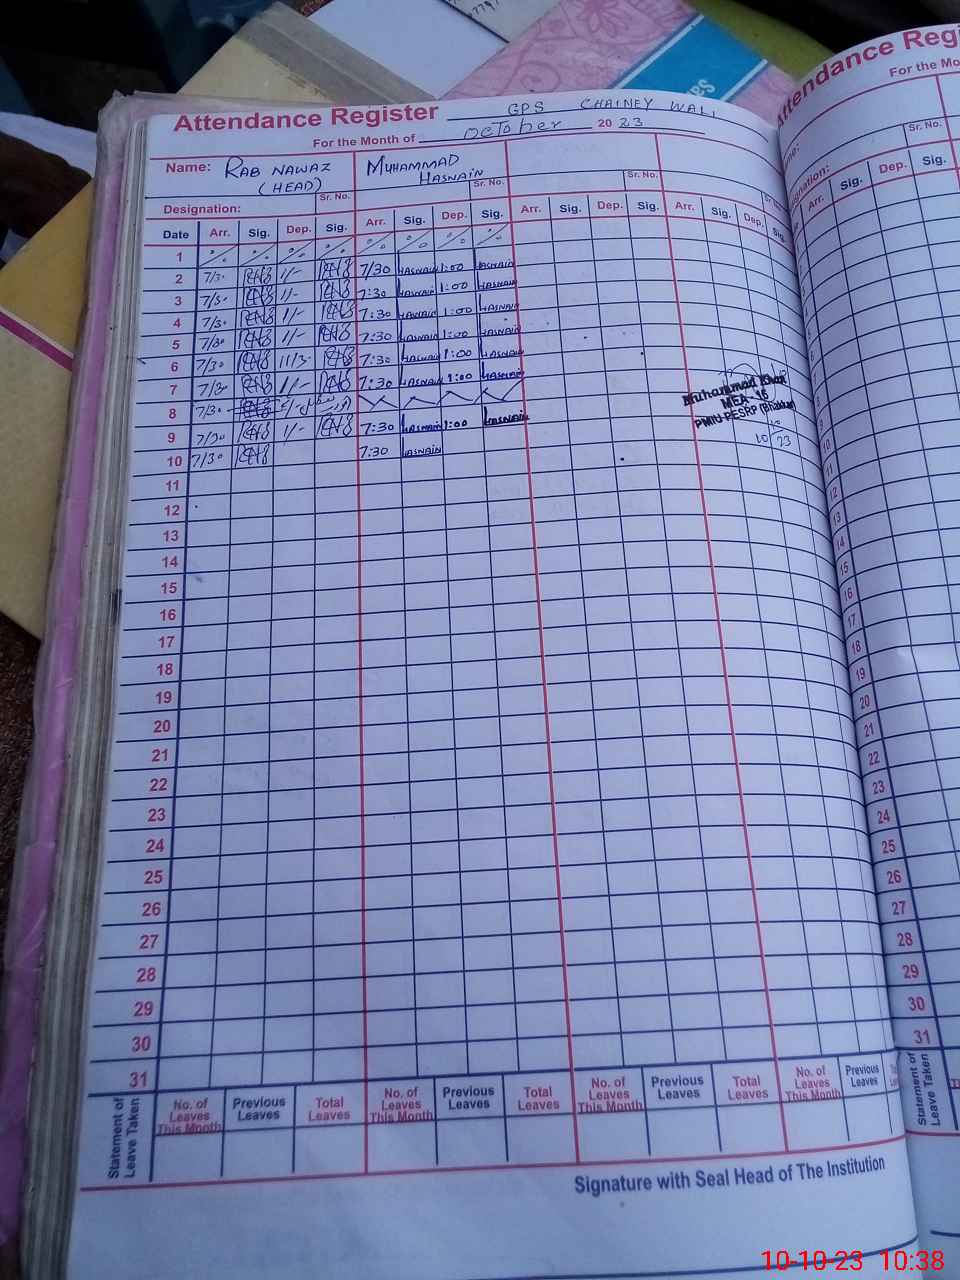 Attendance Register GPS CHAINEY WALI
For the Month of October 20 23
Name: RAB NAWAZ (HEAD) MUHAMMAD HASNAIN
Sr. No. Sr. No. Sr. No. Sr.
Designation:
Date Arr. Sig. Dep. Sig. Arr. Sig. Dep. Sig. Arr. Sig. Dep. Sig. Arr. Sig. Dep. Sig.
1
2 7/30 1/- 7/30 HASNAIN 1:00 HASNAIN
3 7/30 1/- 7:30 HASNAIN 1:00 HASNAIN
4 7/30 1/- 7:30 HASNAIN 1:00 HASNAIN
5 7/30 1/- 7:30 HASNAIN 1:00 HASNAIN
6 7/30 11/30 7:30 HASNAIN 1:00 HASNAIN
7 7/30 1/- 7:30 HASNAIN 1:00 HASNAIN
8 7/30
9 7/30 1/- 7:30 HASNAIN 1:00 HASNAIN
10 7/30 7:30 HASNAIN
Muhammad Khan
MEA-16
PMIU PESRP (Bhakkar)
10/10/23
11
12
13
14
15
16
17
18
19
20
21
22
23
24
25
26
27
28
29
30
31
Statement of Leave Taken
No. of Leaves This Month Previous Leaves Total Leaves No. of Leaves This Month Previous Leaves Total Leaves No. of Leaves This Month Previous Leaves Total Leaves No. of Leaves This Month Previous Leaves
Signature with Seal Head of The Institution
Attendance Regi
For the Mo
Sr. No.
Arr. Sig. Dep. Sig.
10
11
12
13
14
15
16
17
18
19
20
21
22
23
24
25
26
27
28
29
30
31
Statement of Leave Taken
10-10-23 10:38